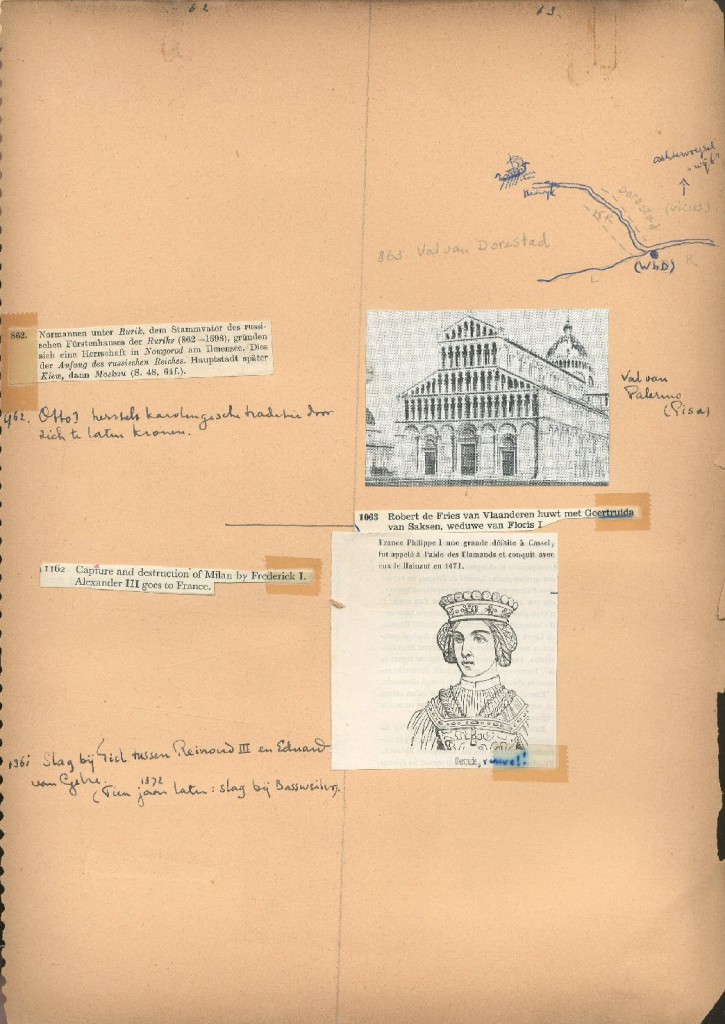 62
63.
achterwegsel
"wijk"
(vicus)
Dorestad
R
(WbD)
L
R
863 Val van Dorestad
862. Normannen unter Rurik, dem Stammvater des russi-
schen Fürstenhauses der Ruriks (862—1598), gründen
sich eine Herrschaft in Nowgorod am Ilmensee. Dies
der Anfang des russischen Reiches. Hauptstadt später
Kiew, dann Moskau (S. 48, 64f.).
Val van
Palermo
(Pisa)
962. Otto I herstelt karolingische traditie door
zich te laten kronen.
1063 Robert de Fries van Vlaanderen huwt met Geertruida
van Saksen, weduwe van Floris I
France Philippe I une grande défaite à Cassel,
fut appelé à l'aide des Flamands et conquit avec
eux le Hainaut en 1071.
1162 Capture and destruction of Milan by Frederick I.
Alexander III goes to France.
1361 Slag bij Tiel tussen Reinoud III en Eduard
van Gelre.
(Tien jaar later: slag bij Bassweiler).
Gertrude,